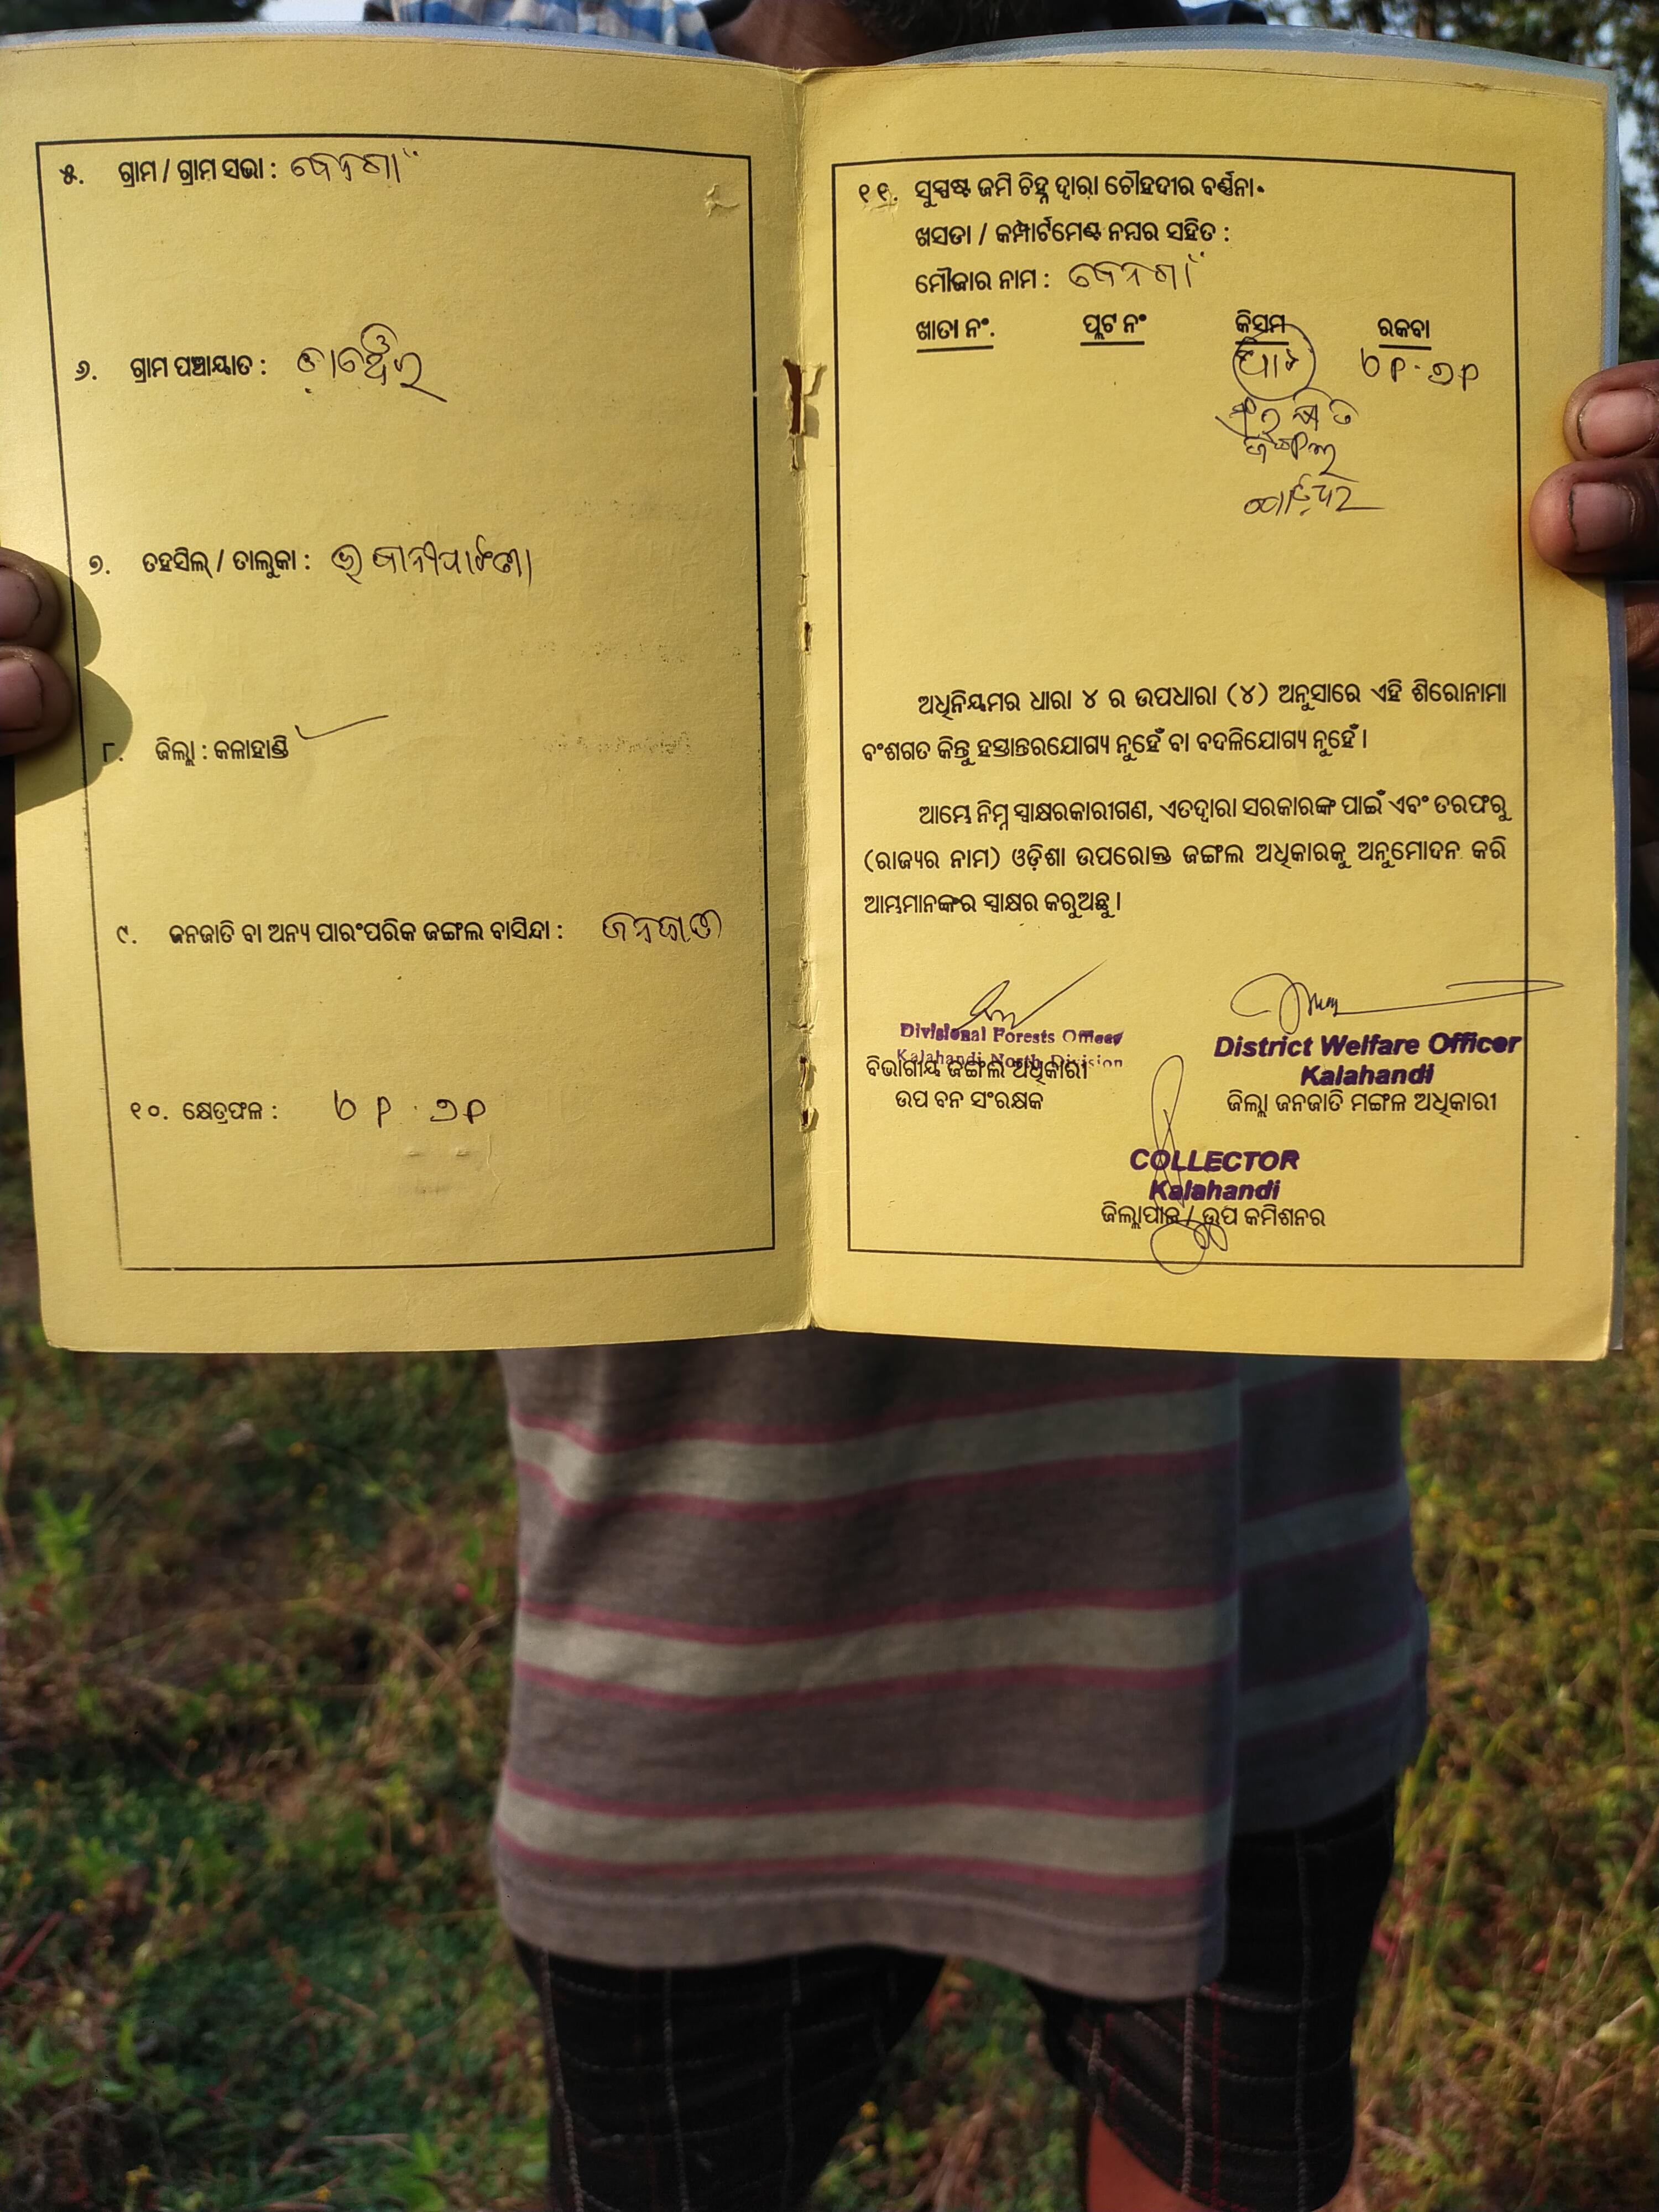 ୫. ଗ୍ରାମ / ଗ୍ରାମ ସଭା : ବେନଗାଁ
୬. ଗ୍ରାମ ପଞ୍ଚାୟାତ :
୭. ତହସିଲ୍ / ତାଲୁକା : ଭବାନୀପାଟଣା
୮. ଜିଲ୍ଲା : କଳାହାଣ୍ଡି
୯. ଜନଜାତି ବା ଅନ୍ୟ ପାରଂପରିକ ଜଙ୍ଗଲ ବାସିନ୍ଦା : ଜନଜାତି
୧୦. କ୍ଷେତ୍ରଫଳ :
୧୧. ସୁସ୍ପଷ୍ଟ ଜମି ଚିହ୍ନ ଦ୍ୱାରା ଚୌହଦୀର ବର୍ଣ୍ଣନା.
ଖସଡା / କମ୍ପାର୍ଟମେଣ୍ଟ ନମ୍ବର ସହିତ :
ମୌଜାର ନାମ : ବେନଗାଁ
ଖାତା ନଂ. ପ୍ଲଟ ନଂ କିସମ ରକବା
ଜଙ୍ଗଲ
ଅଧିନିୟମର ଧାରା ୪ ର ଉପଧାରା (୪) ଅନୁସାରେ ଏହି ଶିରୋନାମା
ବଂଶଗତ କିନ୍ତୁ ହସ୍ତାନ୍ତରଯୋଗ୍ୟ ନୁହେଁ ବା ବଦଳିଯୋଗ୍ୟ ନୁହେଁ ।
ଆମ୍ଭେ ନିମ୍ନ ସ୍ୱାକ୍ଷରକାରୀଗଣ, ଏତଦ୍ୱାରା ସରକାରଙ୍କ ପାଇଁ ଏବଂ ତରଫରୁ
(ରାଜ୍ୟର ନାମ) ଓଡ଼ିଶା ଉପରୋକ୍ତ ଜଙ୍ଗଲ ଅଧିକାରକୁ ଅନୁମୋଦନ କରି
ଆମ୍ଭମାନଙ୍କର ସ୍ୱାକ୍ଷର କରୁଅଛୁ ।
Divisional Forests Officer
Kalahandi North Division
ବିଭାଗୀୟ ଜଙ୍ଗଲ ଅଧିକାରୀ
ଉପ ବନ ସଂରକ୍ଷକ
District Welfare Officer
Kalahandi
ଜିଲ୍ଲା ଜନଜାତି ମଙ୍ଗଳ ଅଧିକାରୀ
COLLECTOR
Kalahandi
ଜିଲ୍ଲାପାଳ / ଉପ କମିଶନର